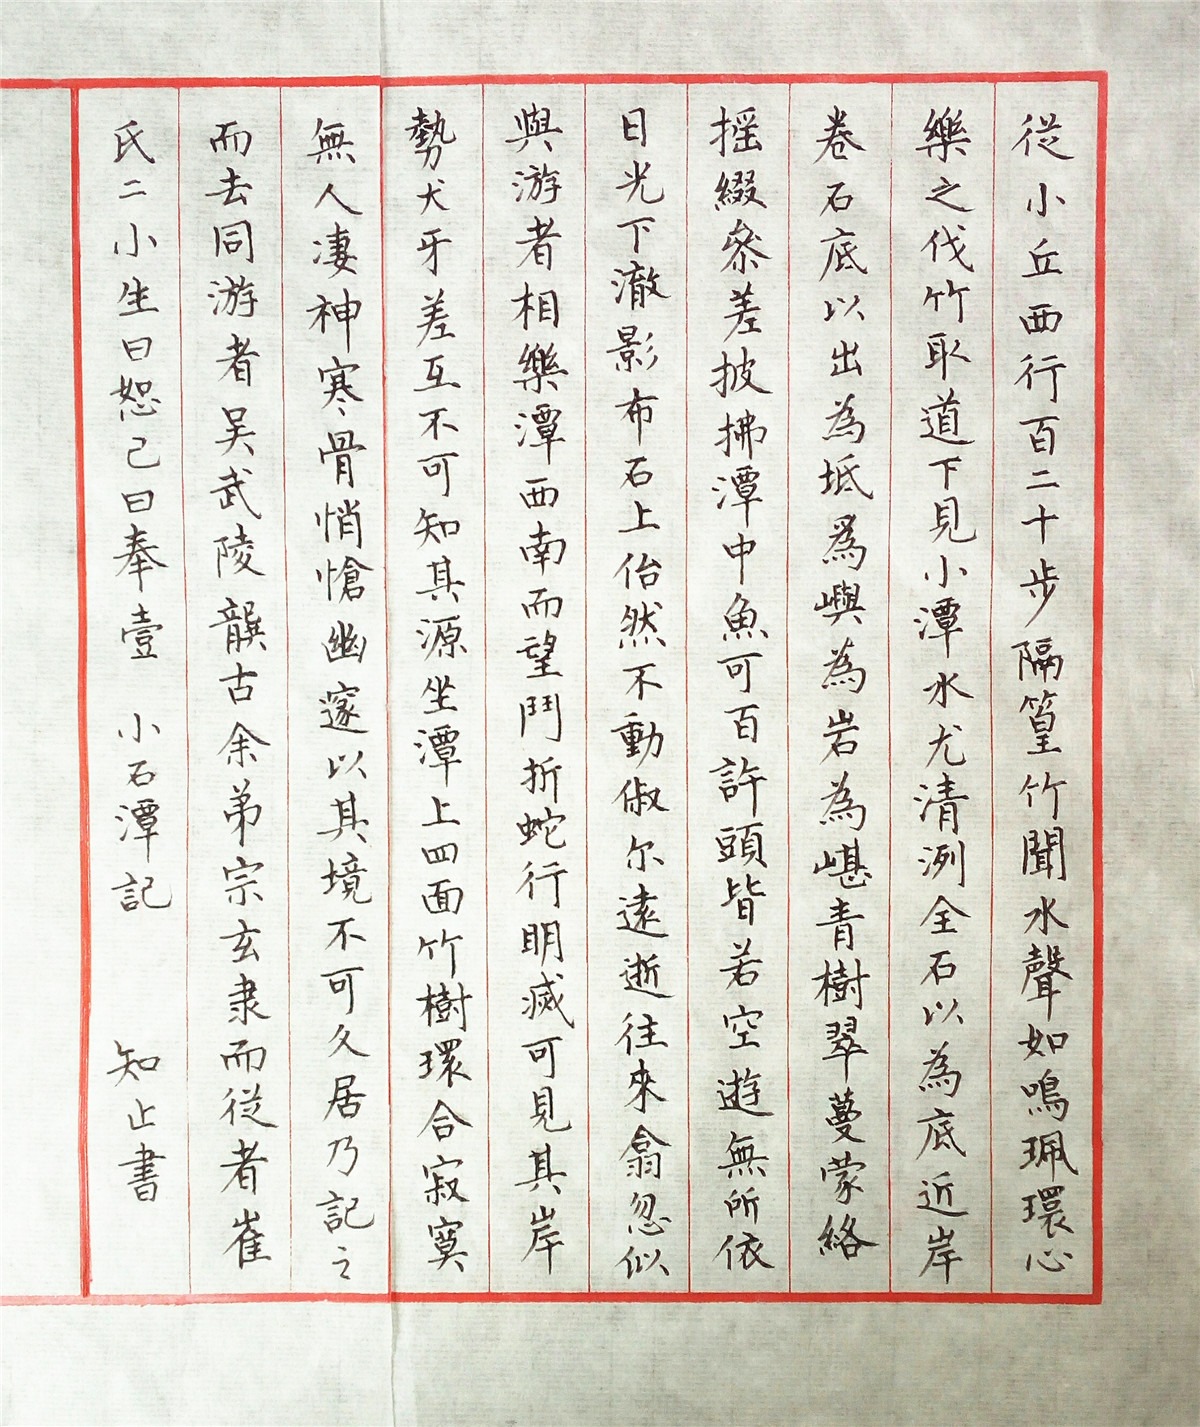 從小丘西行百二十步隔篁竹聞水聲如鳴珮環心
樂之伐竹取道下見小潭水尤清洌全石以為底近岸
卷石底以出為坻為嶼為岩為嵁青樹翠蔓蒙絡
摇綴參差披拂潭中魚可百許頭皆若空遊無所依
日光下澈影布石上佁然不動俶尔遠逝往來翕忽似
與游者相樂潭西南而望鬥折蛇行明滅可見其岸
勢犬牙差互不可知其源坐潭上四面竹樹環合寂寞
無人凄神寒骨悄愴幽邃以其境不可久居乃記之
而去同游者吴武陵龔古余弟宗玄隶而從者崔
氏二小生曰恕己曰奉壹 小石潭記 知止書